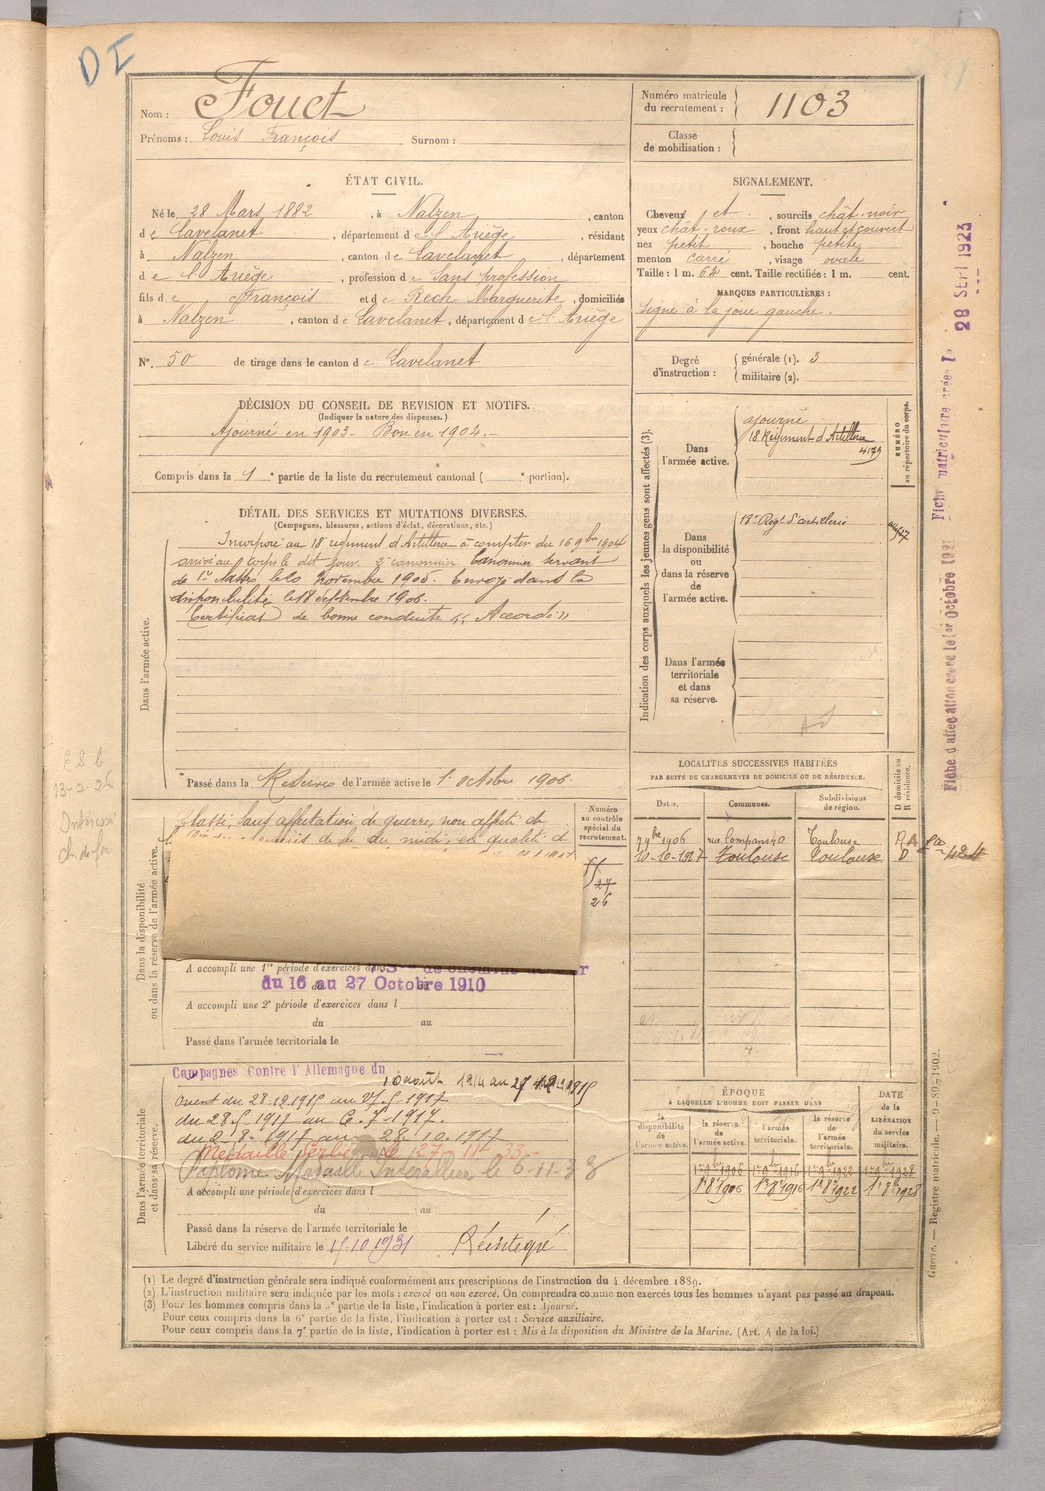 DI
Nom : Fouet
Prénoms : Louis François Surnom :
Numéro matricule du recrutement : 1103
Classe de mobilisation :
ÉTAT CIVIL.
Né le 28 Mars 1882, à Nalzen, canton
de Lavelanet, département de l'Ariège, résidant
à Nalzen, canton de Lavelanet, département
de l'Ariège, profession de Sans profession
fils de François et de Rech Marguerite, domiciliés
à Nalzen, canton de Lavelanet, département de l'Ariège
N°. 50 de tirage dans le canton de Lavelanet
DÉCISION DU CONSEIL DE REVISION ET MOTIFS.
(Indiquer la nature des dispenses.)
Ajourné en 1903 - Bon en 1904.-
Compris dans la 1e partie de la liste du recrutement cantonal ( e portion).
SIGNALEMENT.
Cheveux et, sourcils chât-noir
yeux chât-roux, front haut et couvert
nez petit, bouche petite
menton carré, visage ovale
Taille : 1 m. 68 cent. Taille rectifiée : 1 m. cent.
MARQUES PARTICULIÈRES :
Signe à la joue gauche.
Degré d'instruction : générale (1). 3
militaire (2).
DÉTAIL DES SERVICES ET MUTATIONS DIVERSES.
(Campagnes, blessures, actions d'éclat, décorations, etc.)
Dans l'armée active.
Incorporé au 18e régiment d'Artillerie à compter du 16 9bre 1904
arrivé au corps le dit jour 2e canonnier Canonnier servant
de 1re classe le 10 Novembre 1905. Envoyé dans la
disponibilité le 18 septembre 1906.
Certificat de bonne conduite "Accordé"
Passé dans la Réserve de l'armée active le 1er octobre 1906.
Indication des corps auxquels les jeunes gens sont affectés (3).
NUMÉRO au répertoire du corps.
Dans l'armée active.
ajourné
18 Régiment d'Artillerie
4179
Dans la disponibilité ou dans la réserve de l'armée active.
18e Régt d'artillerie
Dans l'armée territoriale et dans sa réserve.
LOCALITÉS SUCCESSIVES HABITÉES
PAR SUITE DE CHANGEMENTS DE DOMICILE OU DE RÉSIDENCE.
Dates. Communes. Subdivisions de région. D domicile ou R résidence.
7 9bre 1906 rue Compans 40 Toulouse R
10-10-1927 Toulouse Toulouse D
Dans la disponibilité ou dans la réserve de l'armée active.
Numéro au contrôle spécial du recrutement.
Classé, sans affectation de guerre, non affecté de
du midi, en qualité de
27
26
A accompli une 1re période d'exercices dans
du 16 au 27 Octobre 1910
A accompli une 2e période d'exercices dans l
du au
Passé dans l'armée territoriale le
Dans l'armée territoriale et dans sa réserve.
Campagnes Contre l'Allemagne du
Orient du 28.12.1915 au
du 28.5.1917 au 6.7.1917.
du 2.8.1917 au 28.10.1917
Médaille Serbe le 27-11-33-
Diplôme Médaille Interalliée le 6-11-38
A accompli une période d'exercices dans l
du au
Passé dans la réserve de l'armée territoriale le
Libéré du service militaire le 15-10-1931 Réintégré
ÉPOQUE
À LAQUELLE L'HOMME DOIT PASSER DANS
la disponibilité de l'armée active. la réserve de l'armée active. l'armée territoriale. la réserve de l'armée territoriale.
DATE de la LIBÉRATION du service militaire.
1er 9bre 1906 1er 9bre 1916 1er 9bre 1922 1er 9bre 1928
1er 8bre 1906 1er 8bre 1916 1er 8bre 1922 1er 8bre 1928
(1) Le degré d'instruction générale sera indiqué conformément aux prescriptions de l'instruction du 4 décembre 1889.
(2) L'instruction militaire sera indiquée par les mots : exercé ou non exercé. On comprendra comme non exercés tous les hommes n'ayant pas passé au drapeau.
(3) Pour les hommes compris dans la 5e partie de la liste, l'indication à porter est : Ajourné.
Pour ceux compris dans la 6e partie de la liste, l'indication à porter est : Service auxiliaire.
Pour ceux compris dans la 7e partie de la liste, l'indication à porter est : Mis à la disposition du Ministre de la Marine. (Art. 4 de la loi.)
13-2-26
Ch de fer
28 SEPT 1923
Fiche matriculaire créée le
Fiche d'affectation créée le 1er Octobre 1921
Guerre. — Registre matricule. — 9-89-1902.